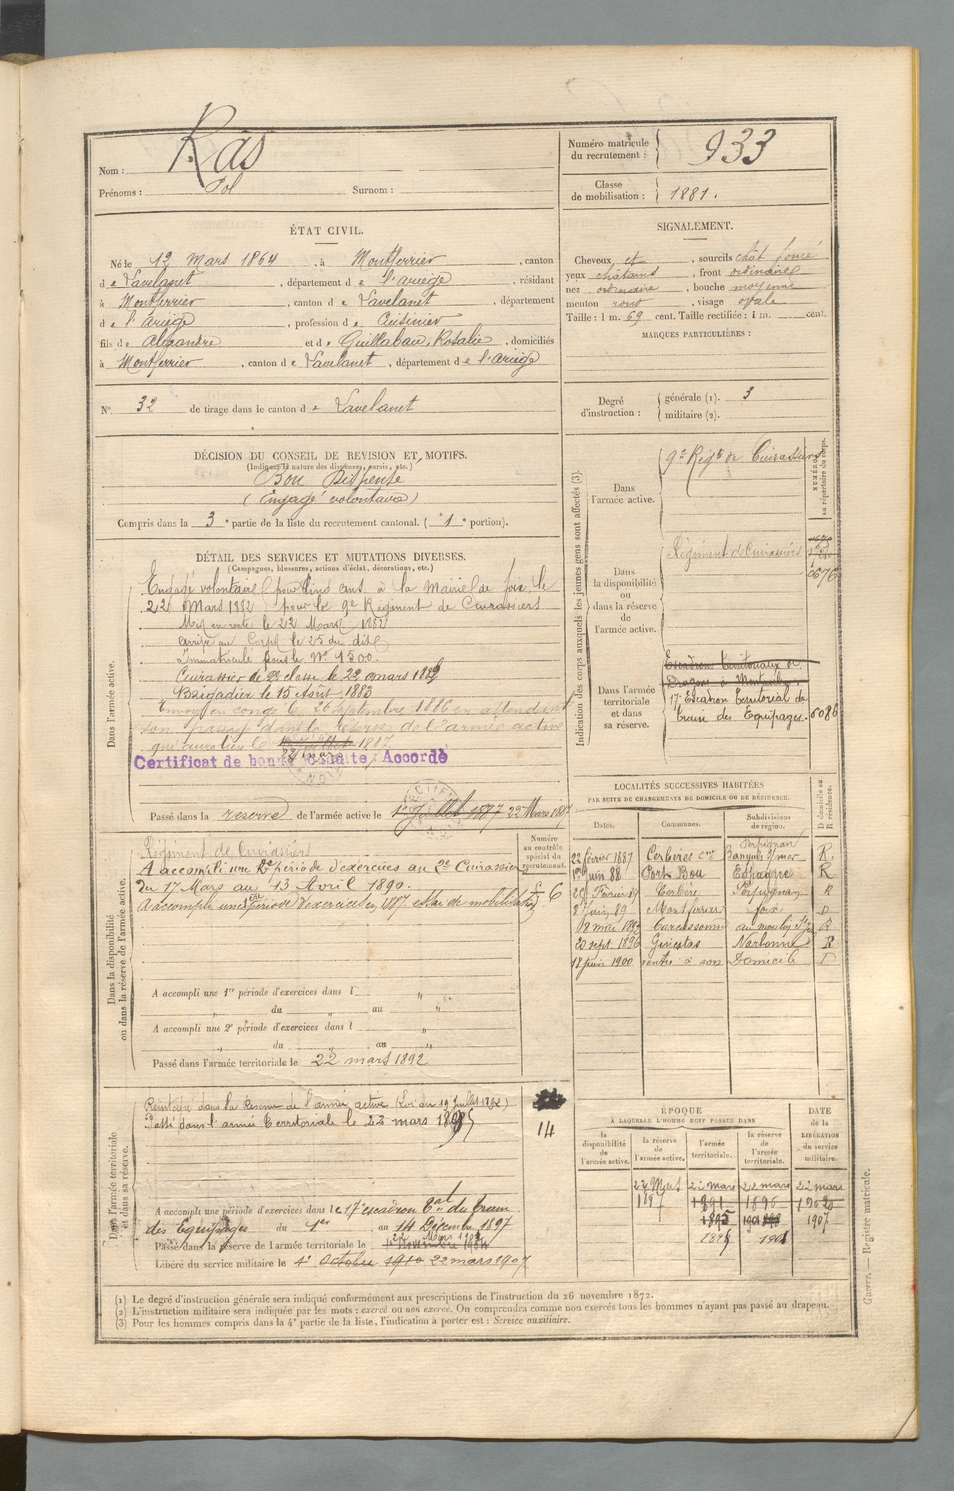 Nom : Ras
Prénoms : Pol Surnom :
Numéro matricule du recrutement : 933
Classe de mobilisation : 1881.
ÉTAT CIVIL.
Né le 12 mars 1864, à Montferrier, canton
de Lavelanet, département de l'ariège, résidant
à Montferrier, canton de Lavelanet, département
de l'ariège, profession de Cuisinier
fils de Alexandre et de Rosalie, domiciliés
à Montferrier, canton de Lavelanet, département de l'ariège
N° 32 de tirage dans le canton de Lavelanet
SIGNALEMENT.
Cheveux et, sourcils chât foncé
yeux châtains, front ordinaire
nez ordinaire, bouche moyenne
menton rond, visage ovale
Taille : 1 m. 69 cent. Taille rectifiée : 1 m. cent.
MARQUES PARTICULIÈRES :
Degré d'instruction : générale (1). 3
militaire (2).
DÉCISION DU CONSEIL DE REVISION ET MOTIFS.
(Indiquer la nature des dispenses, sursis, etc.)
Bon Dispensé
(Engagé volontaire)
Compris dans la 3e partie de la liste du recrutement cantonal. (1e portion).
DÉTAIL DES SERVICES ET MUTATIONS DIVERSES.
(Campagnes, blessures, actions d'éclat, décorations, etc.)
Dans l'armée active.
Engagé volontaire pour cinq ans à la Mairie de foix, le
22 Mars 1882 pour le 9e Régiment de Cuirassiers
Mis en route le 22 Mars 1882
arrivé au Corps le 25 du dit
Immatriculé sous le N° 1500.
Cuirassier de 2e classe le 22 mars 1882
Brigadier le 15 Août 1883
Envoyé en congé le 26 septembre 1886 en attendant
son passage dans la réserve de l'armée active
qui aura lieu le 1887
22 mars
Certificat de bonne conduite : Accordé
Passé dans la réserve de l'armée active le 1er juillet 1887 22 Mars 1887
Indication des corps auxquels les jeunes gens sont affectés (3).
NUMÉROS au répertoire du corps.
Dans l'armée active. 9e Régt de Cuirassiers
Dans la disponibilité ou dans la réserve de l'armée active. Régiment de Cuirassiers
Dans l'armée territoriale et dans sa réserve. Escadrons territoriaux de
Dragons à Montauban.
17e Escadron Territorial du
train des Equipages. 6086
LOCALITÉS SUCCESSIVES HABITÉES
PAR SUITE DE CHANGEMENTS DE DOMICILE OU DE RÉSIDENCE.
Dates. Communes. Subdivisions de région. D domicile ou R résidence.
22 février 1887 Cerbères Banyuls s/mer Perpignan R.
juin 88 Port Bou Espagne R
Février 89 Cerbère Perpignan R
8 juin 89 Montferrier foix D
Carcassonne R
20 sept. 1896 Ginestas Narbonne R
18 juin 1900 rentré à son Domicile
Dans la disponibilité ou dans la réserve de l'armée active.
Numéro au contrôle spécial du recrutement.
Régiment de Cuirassiers
A accompli une période d'exercices au Cuirassiers
Du 17 Mars au 13 Avril 1890.
A accompli une période d'exercices en 1887. essai de mobilisation 6
A accompli une 1re période d'exercices dans l
du au
A accompli une 2e période d'exercices dans l
du au
Passé dans l'armée territoriale le 22 mars 1892
Dans l'armée territoriale et dans sa réserve.
Réintégré dans la Réserve de l'armée active (Loi du 19 juillet 1892)
Passé dans l'armée territoriale le 22 mars 1895
14
A accompli une période d'exercices dans le 17e escadron Tal du Train
des Equipages du 1er au 14 Décembre 1897
Passé dans la réserve de l'armée territoriale le 22 Mars 1901
Libéré du service militaire le 1er Octobre 1910 22 mars 1907
ÉPOQUE
À LAQUELLE L'HOMME DOIT PASSER DANS
la disponibilité de l'armée active. la réserve de l'armée active. l'armée territoriale. la réserve de l'armée territoriale.
DATE de la LIBÉRATION du service militaire.
22 Mars 22 mars 22 mars 22 mars
1887 1891 1896 1902
1895 1907
1895 1901
(1) Le degré d'instruction générale sera indiqué conformément aux prescriptions de l'instruction du 26 novembre 1872.
(2) L'instruction militaire sera indiquée par les mots : exercé ou non exercé. On comprendra comme non exercés tous les hommes n'ayant pas passé au drapeau.
(3) Pour les hommes compris dans la 4e partie de la liste, l'indication à porter est : Service auxiliaire.
Guerre. — Registre matricule.